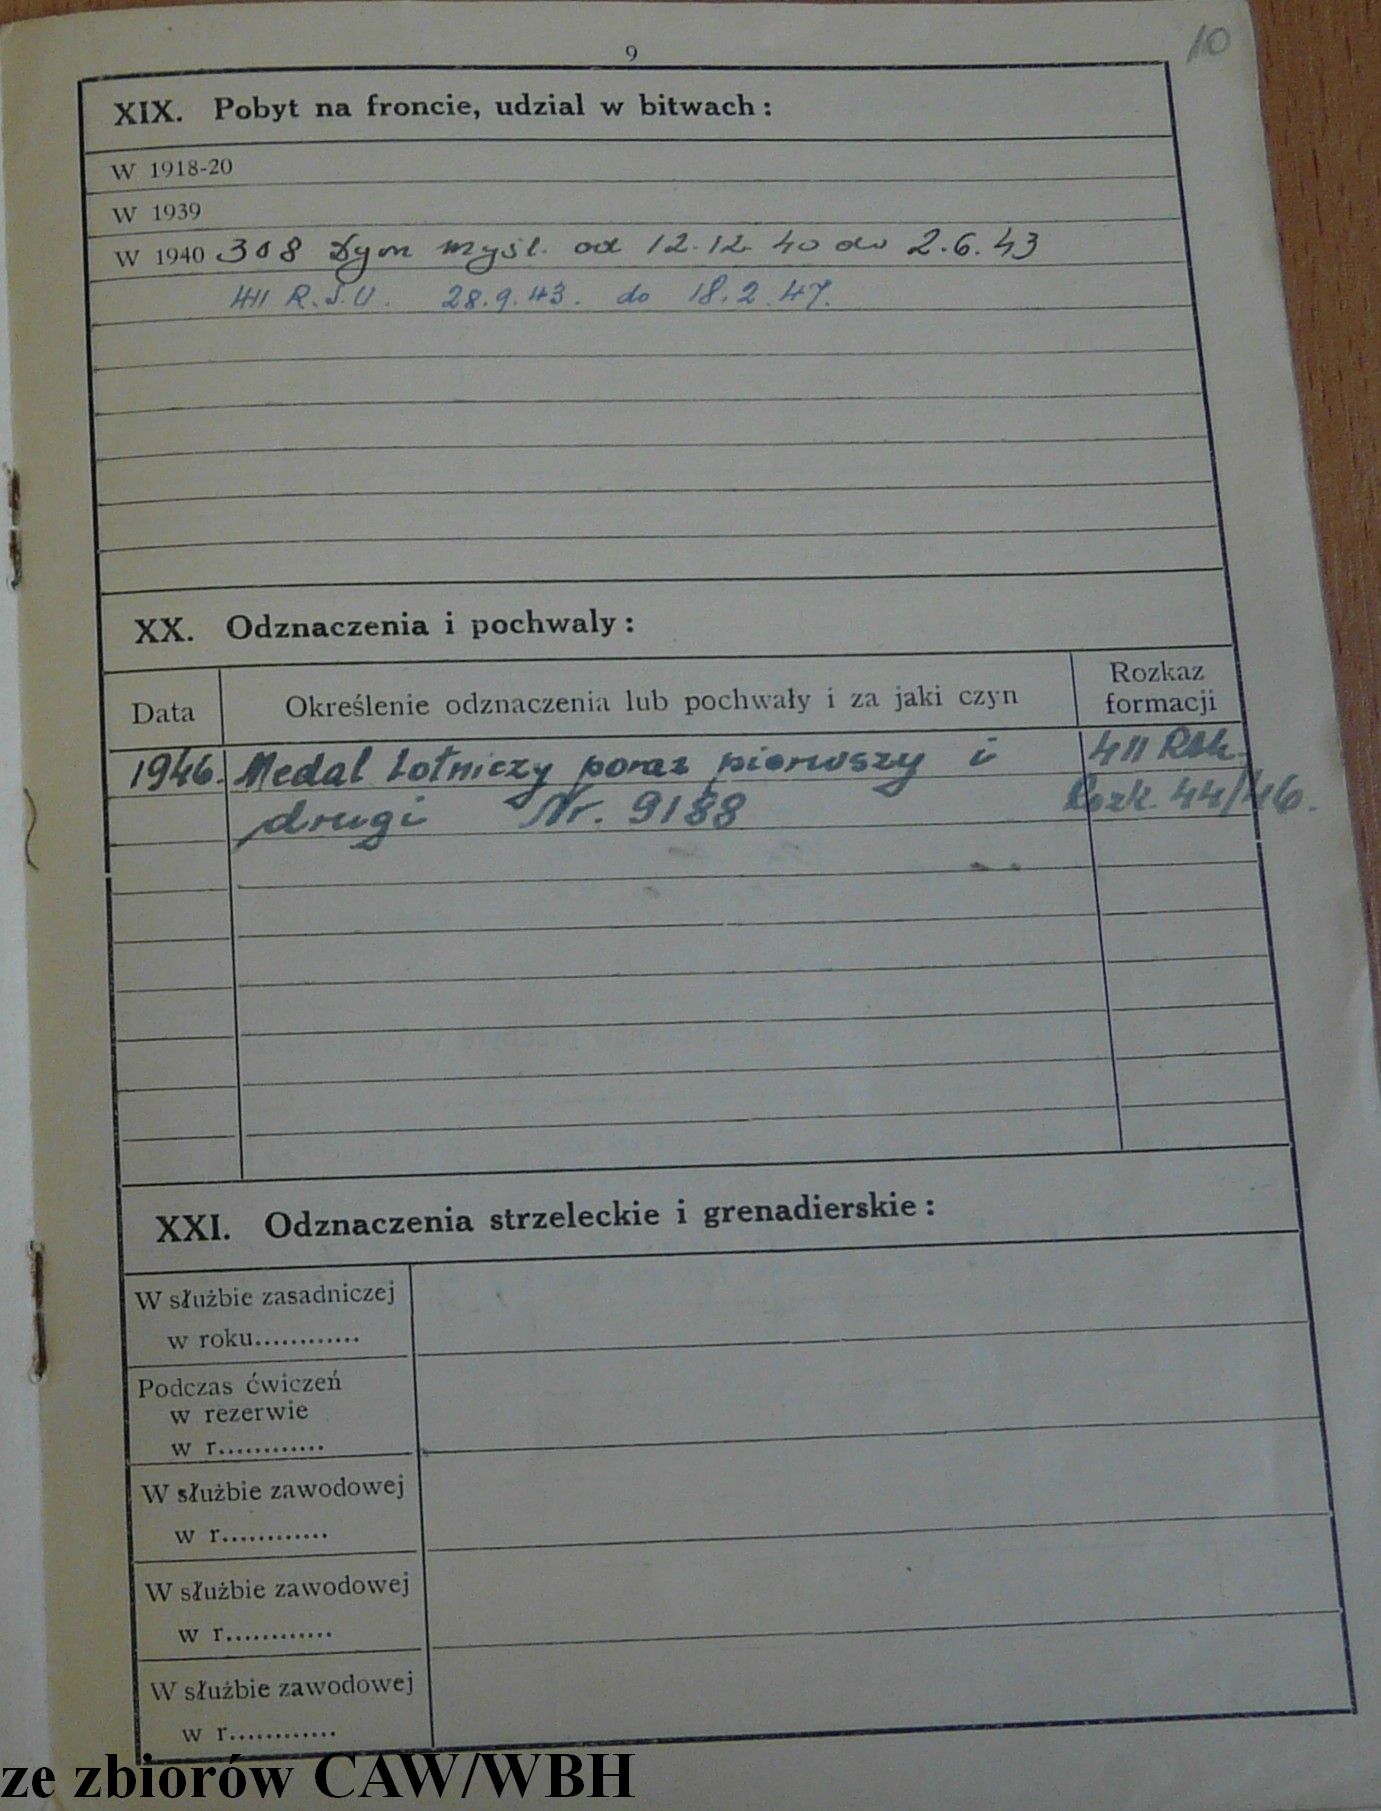 9
10
XIX. Pobyt na froncie, udzial w bitwach:
W 1918-20
W 1939
W 1940 308 Dyon myśl. od 12.12.40 do 2.6.43
411 R.S.U. 28.9.43. do 18.2.47.
XX. Odznaczenia i pochwaly:
Data Określenie odznaczenia lub pochwały i za jaki czyn Rozkaz formacji
1946. Medal Lotniczy poraz pierwszy i 411 RSU.
drugi Nr. 9188 Rozk. 44/46.
XXI. Odznaczenia strzeleckie i grenadierskie:
W służbie zasadniczej
w roku............
Podczas ćwiczeń
w rezerwie
w r............
W służbie zawodowej
w r............
W służbie zawodowej
w r............
W służbie zawodowej
w r............
ze zbiorów CAW/WBH